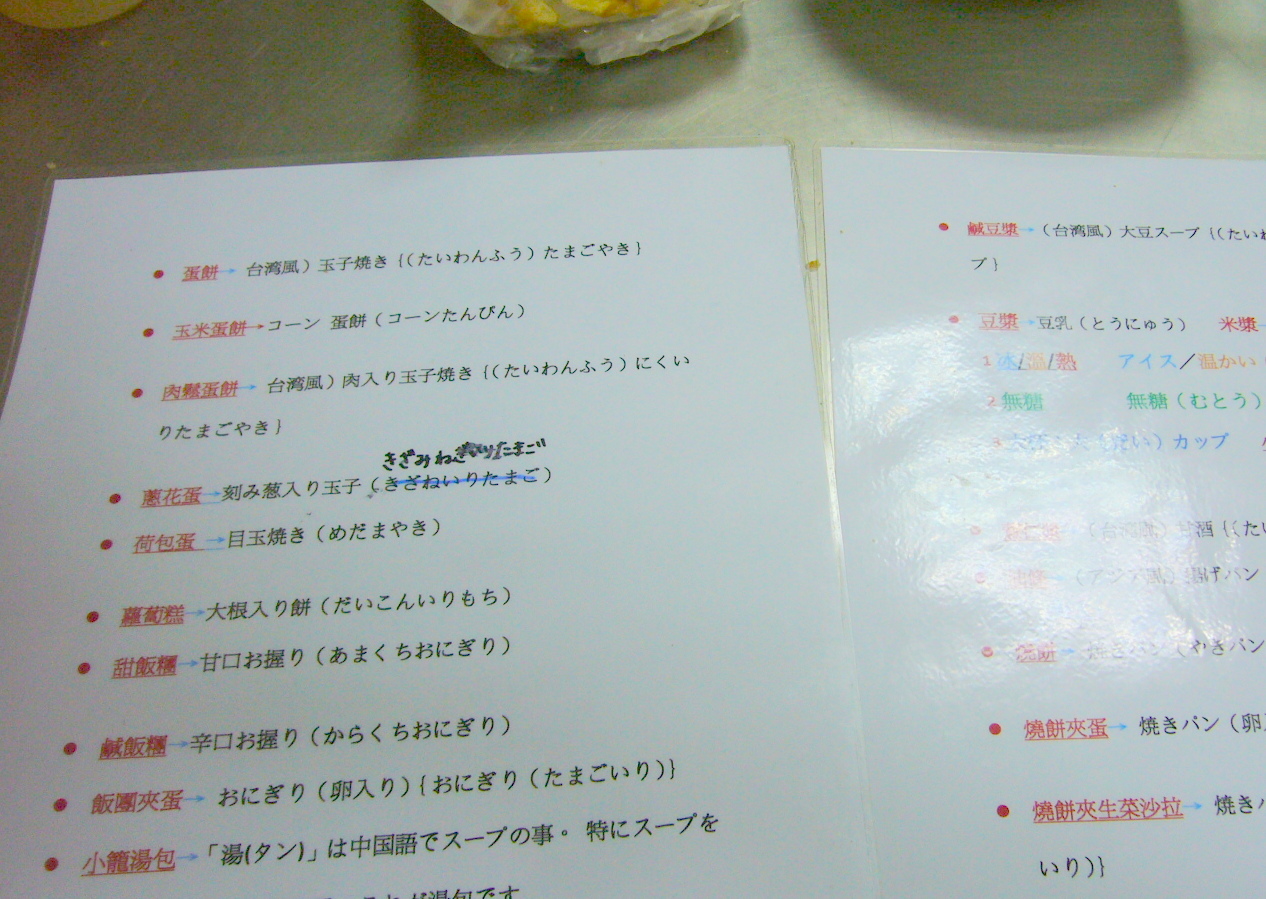 蛋餅→ 台湾風）玉子焼き {(たいわんふう）たまごやき}
玉米蛋餅→コーン 蛋餅（コーンたんぴん）
肉鬆蛋餅→ 台湾風）肉入り玉子焼き {(たいわんふう）にくい
りたまごやき}
きざみねぎいりたまご
蔥花蛋→刻み葱入り玉子（きざねいりたまご）
荷包蛋→目玉焼き（めだまやき）
蘿蔔糕→大根入り餅（だいこんいりもち）
甜飯糰→甘口お握り（あまくちおにぎり）
鹹飯糰→辛口お握り（からくちおにぎり）
飯團夾蛋→ おにぎり（卵入り）{おにぎり（たまごいり）}
小籠湯包→「湯(タン)」は中国語でスープの事。特にスープを
湯包です
鹹豆漿→（台湾風）大豆スープ {(たい
プ}
豆漿→豆乳（とうにゅう） 米漿
1 冰/溫/熱 アイス／温かい
2 無糖 無糖（むとう）
3 カップ
（台湾風）甘酒 {(た
（アジア風）揚げパン
燒餅→ 焼きパン（やきパン
燒餅夾蛋→ 焼きパン（卵
燒餅夾生菜沙拉→ 焼き
いり）}